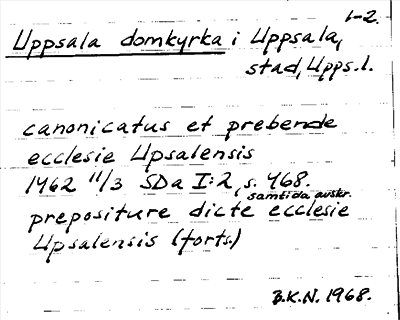 1-2.
Uppsala domkyrka i Uppsala,
stad, Upps.l.
canonicatus et prebende
ecclesie Upsalensis
1462 11/3 SDa I:2, s. 468.
samtida avskr.
prepositure dicte ecclesie
Upsalensis (forts.)
B.K.N. 1968.